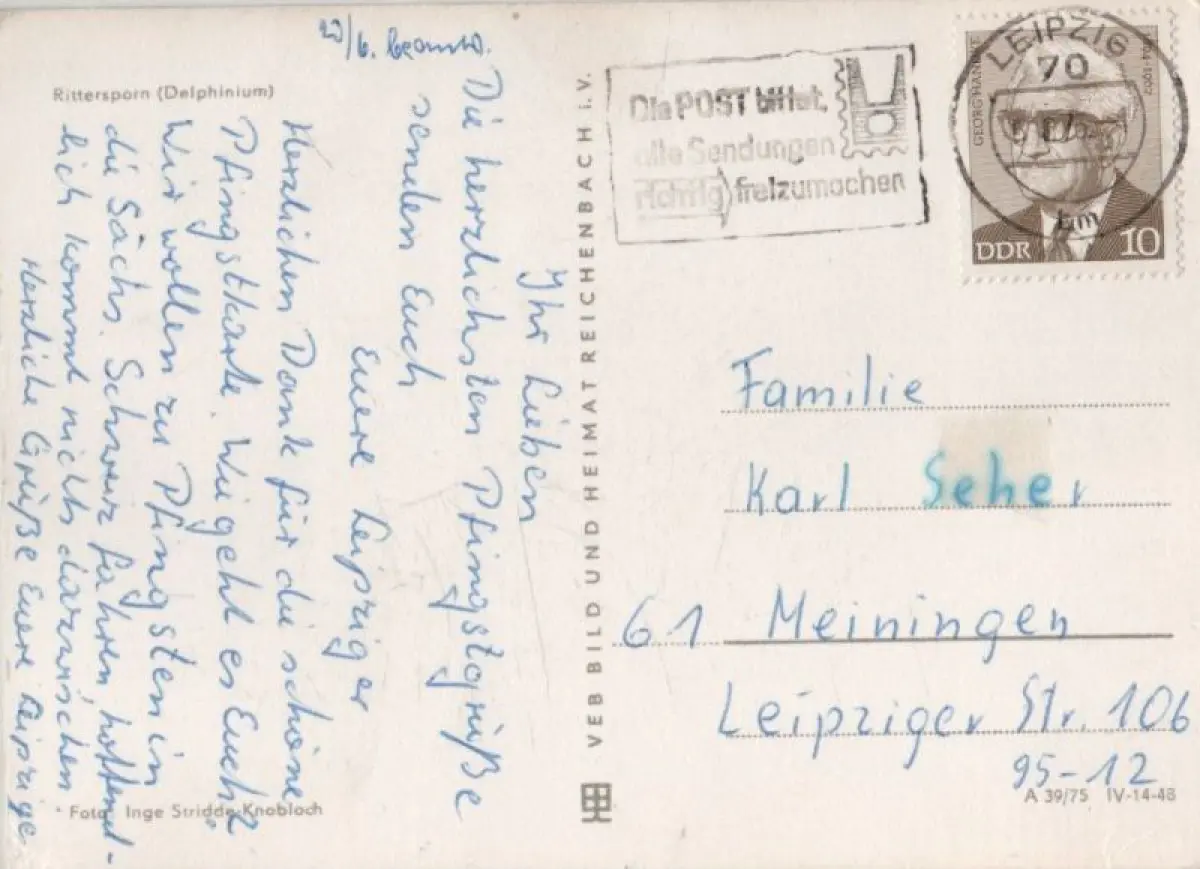 23/6. beantw.
Rittersporn (Delphinium)
Ihr Lieben
Die herzlichsten Pfingstgrüße
senden Euch
Euere Leipziger
Herzlichen Dank für die schöne
Pfingstkarte. Wie geht es Euch?
Wir wollen zu Pfingsten in
die Sächs. Schweiz fahren, hoffent-
lich kommt nichts dazwischen
Herzliche Grüße Euere Leipziger
Foto: Inge Stridde-Knobloch
VEB BILD UND HEIMAT REICHENBACH i. V.
Die POST bittet,
alle Sendungen
richtig freizumachen
LEIPZIG
70
bm
GEORG HANDKE
DDR 10
Familie
Karl Seher
61 Meiningen
Leipziger Str. 106
95-12
A 39/75 IV-14-48